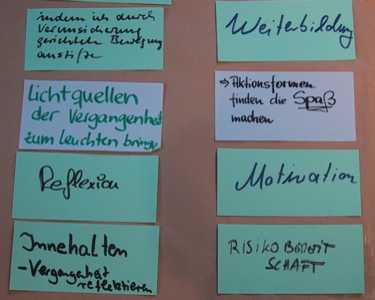 indem ich durch
Verunsicherung
gerichtete Bewegung
anstifte
Lichtquellen
der Vergangenheit
zum leuchten bringe
Reflexion
Innehalten
- Vergangenheit
reflektieren
Weiterbildung
→ Aktionsformen
finden die Spaß
machen
Motivation
RISIKOBEREIT
SCHAFT